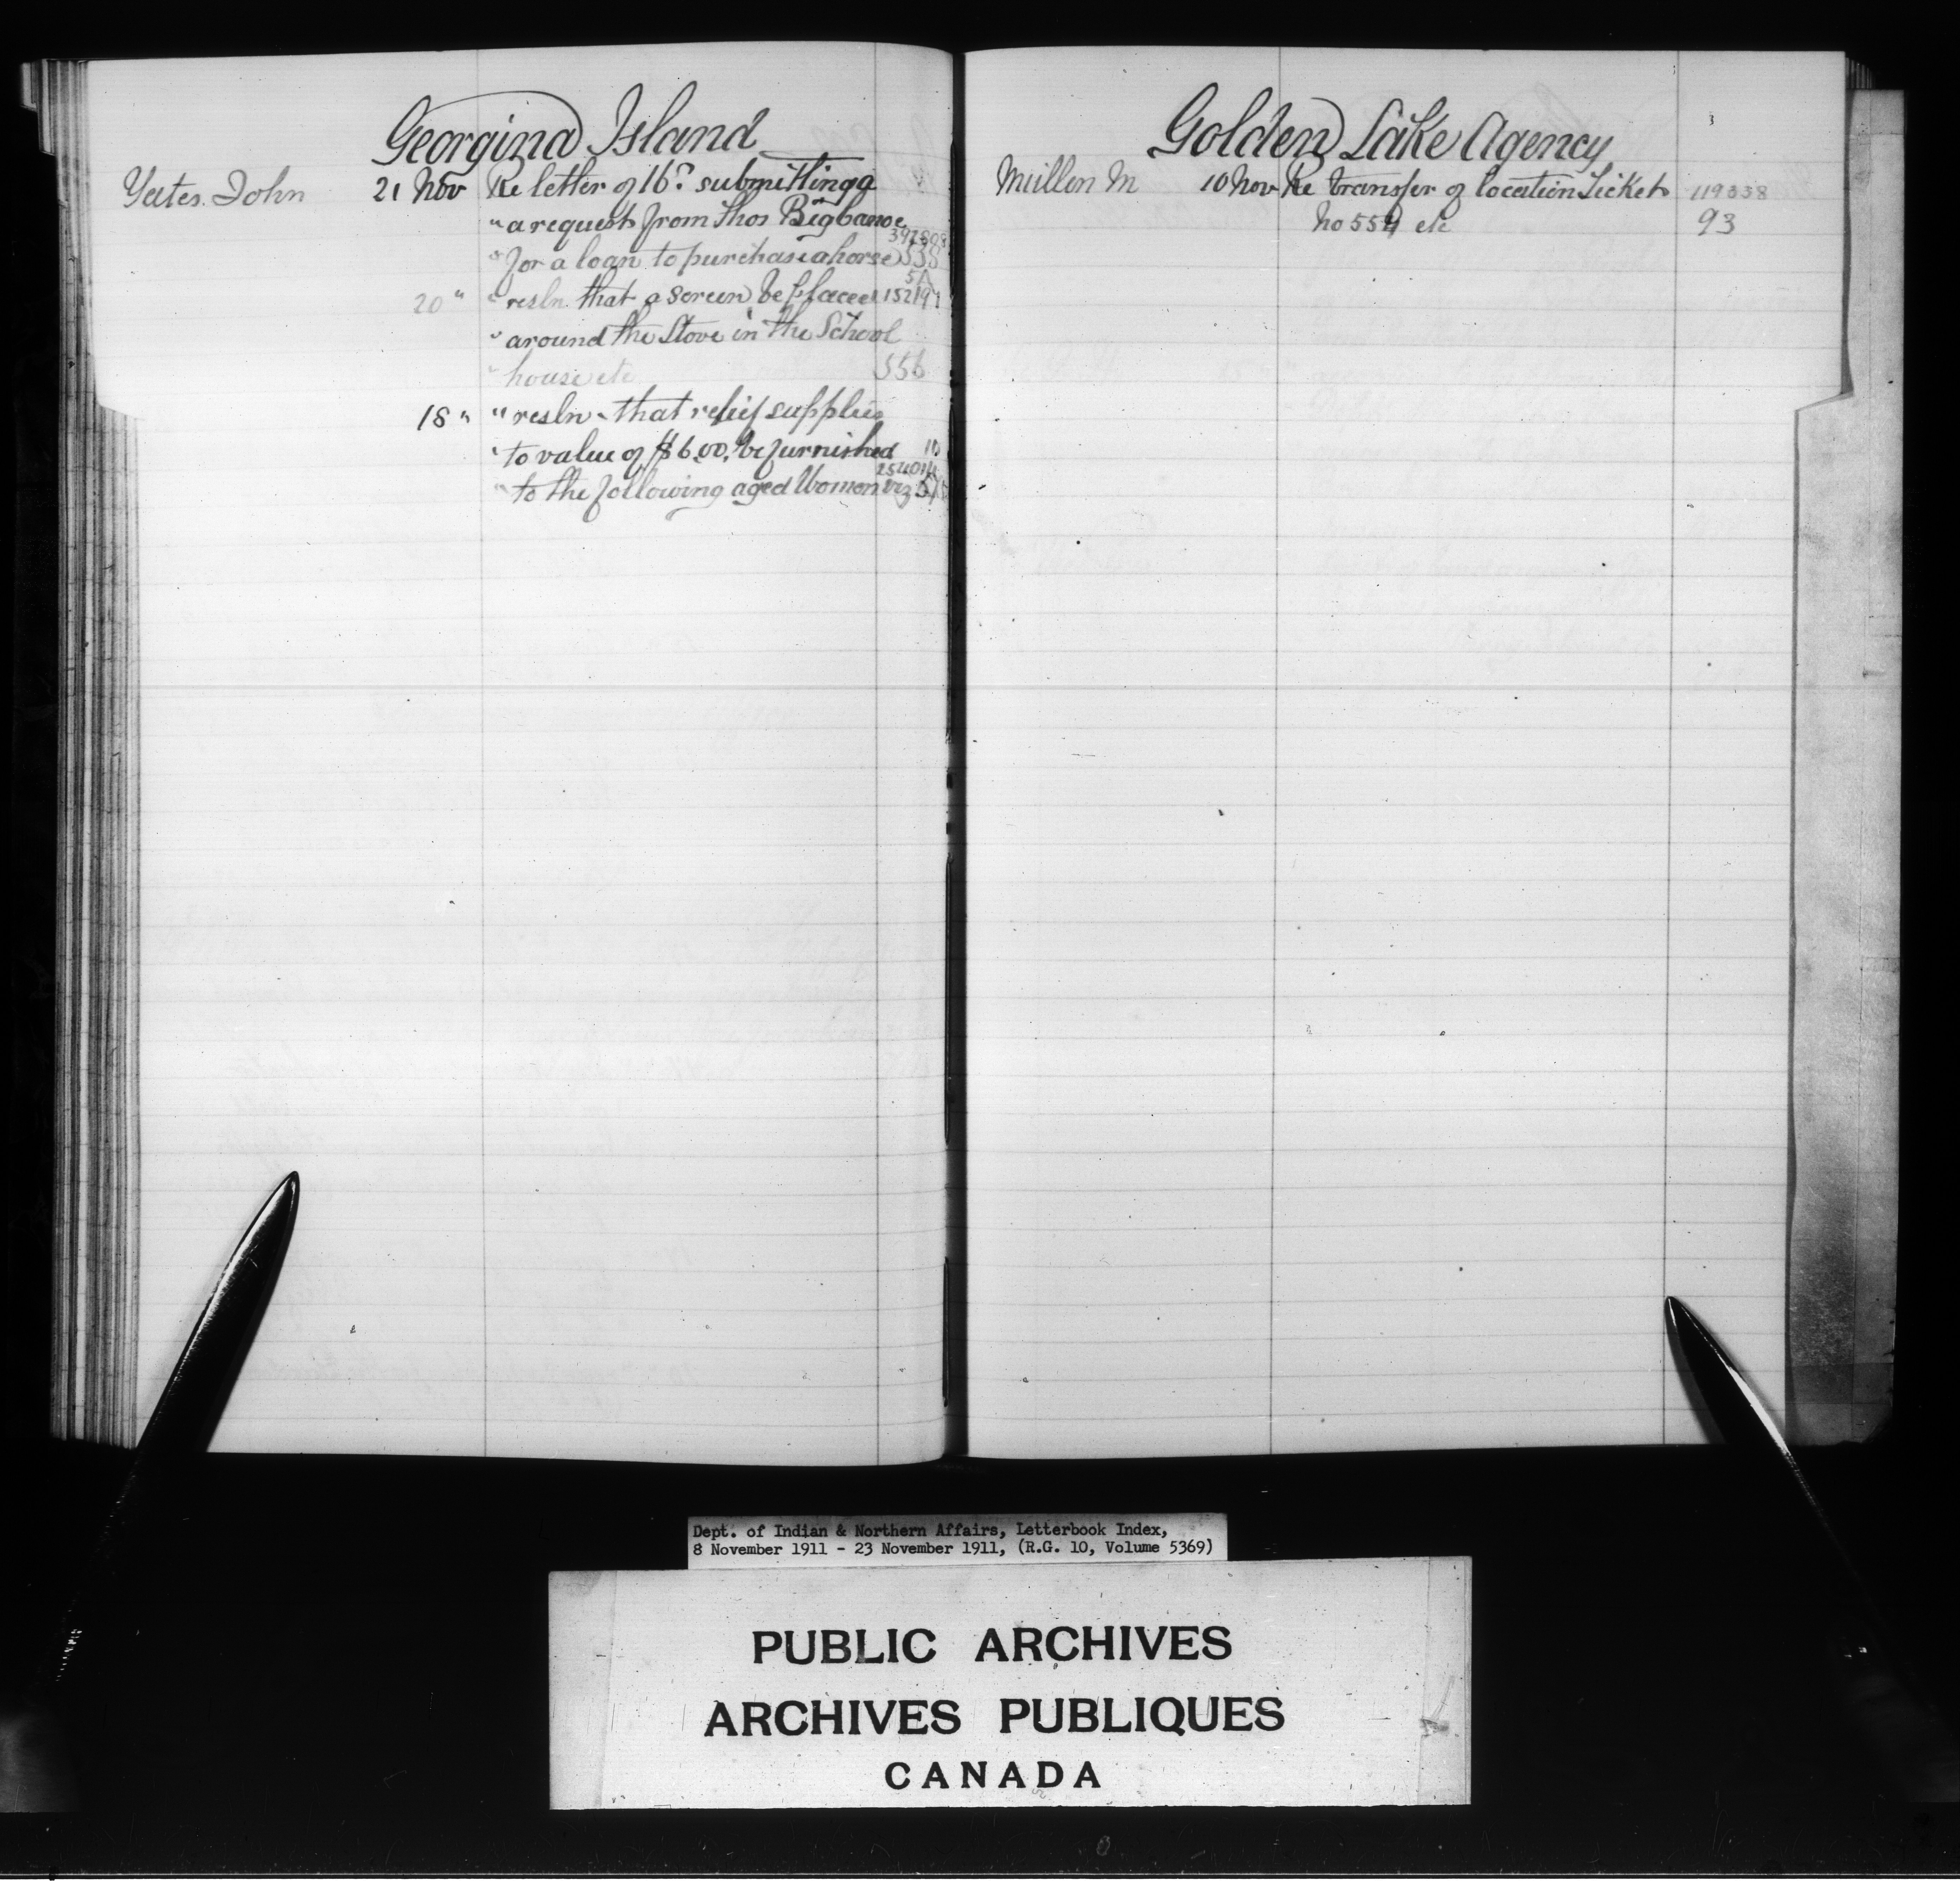 Georgina Island
Yates. John 21 Nov Re letter of 16th submitting a
" a request from Thos Bigcanoe
" for a loan to purchase a horse 538
20 " " resln that a screen be placed
" around the Stove in the School
" house etc 556
18 " " resln - that relief supplies
" to value of $6.00, be furnished
" to the following aged Women viz
Golden Lake Agency
Mullen M 10 Nov Re transfer of location Ticket 119338
No 554 etc 93
Dept. of Indian & Northern Affairs, Letterbook Index,
8 November 1911 - 23 November 1911, (R.G. 10, Volume 5369)
PUBLIC ARCHIVES
ARCHIVES PUBLIQUES
CANADA